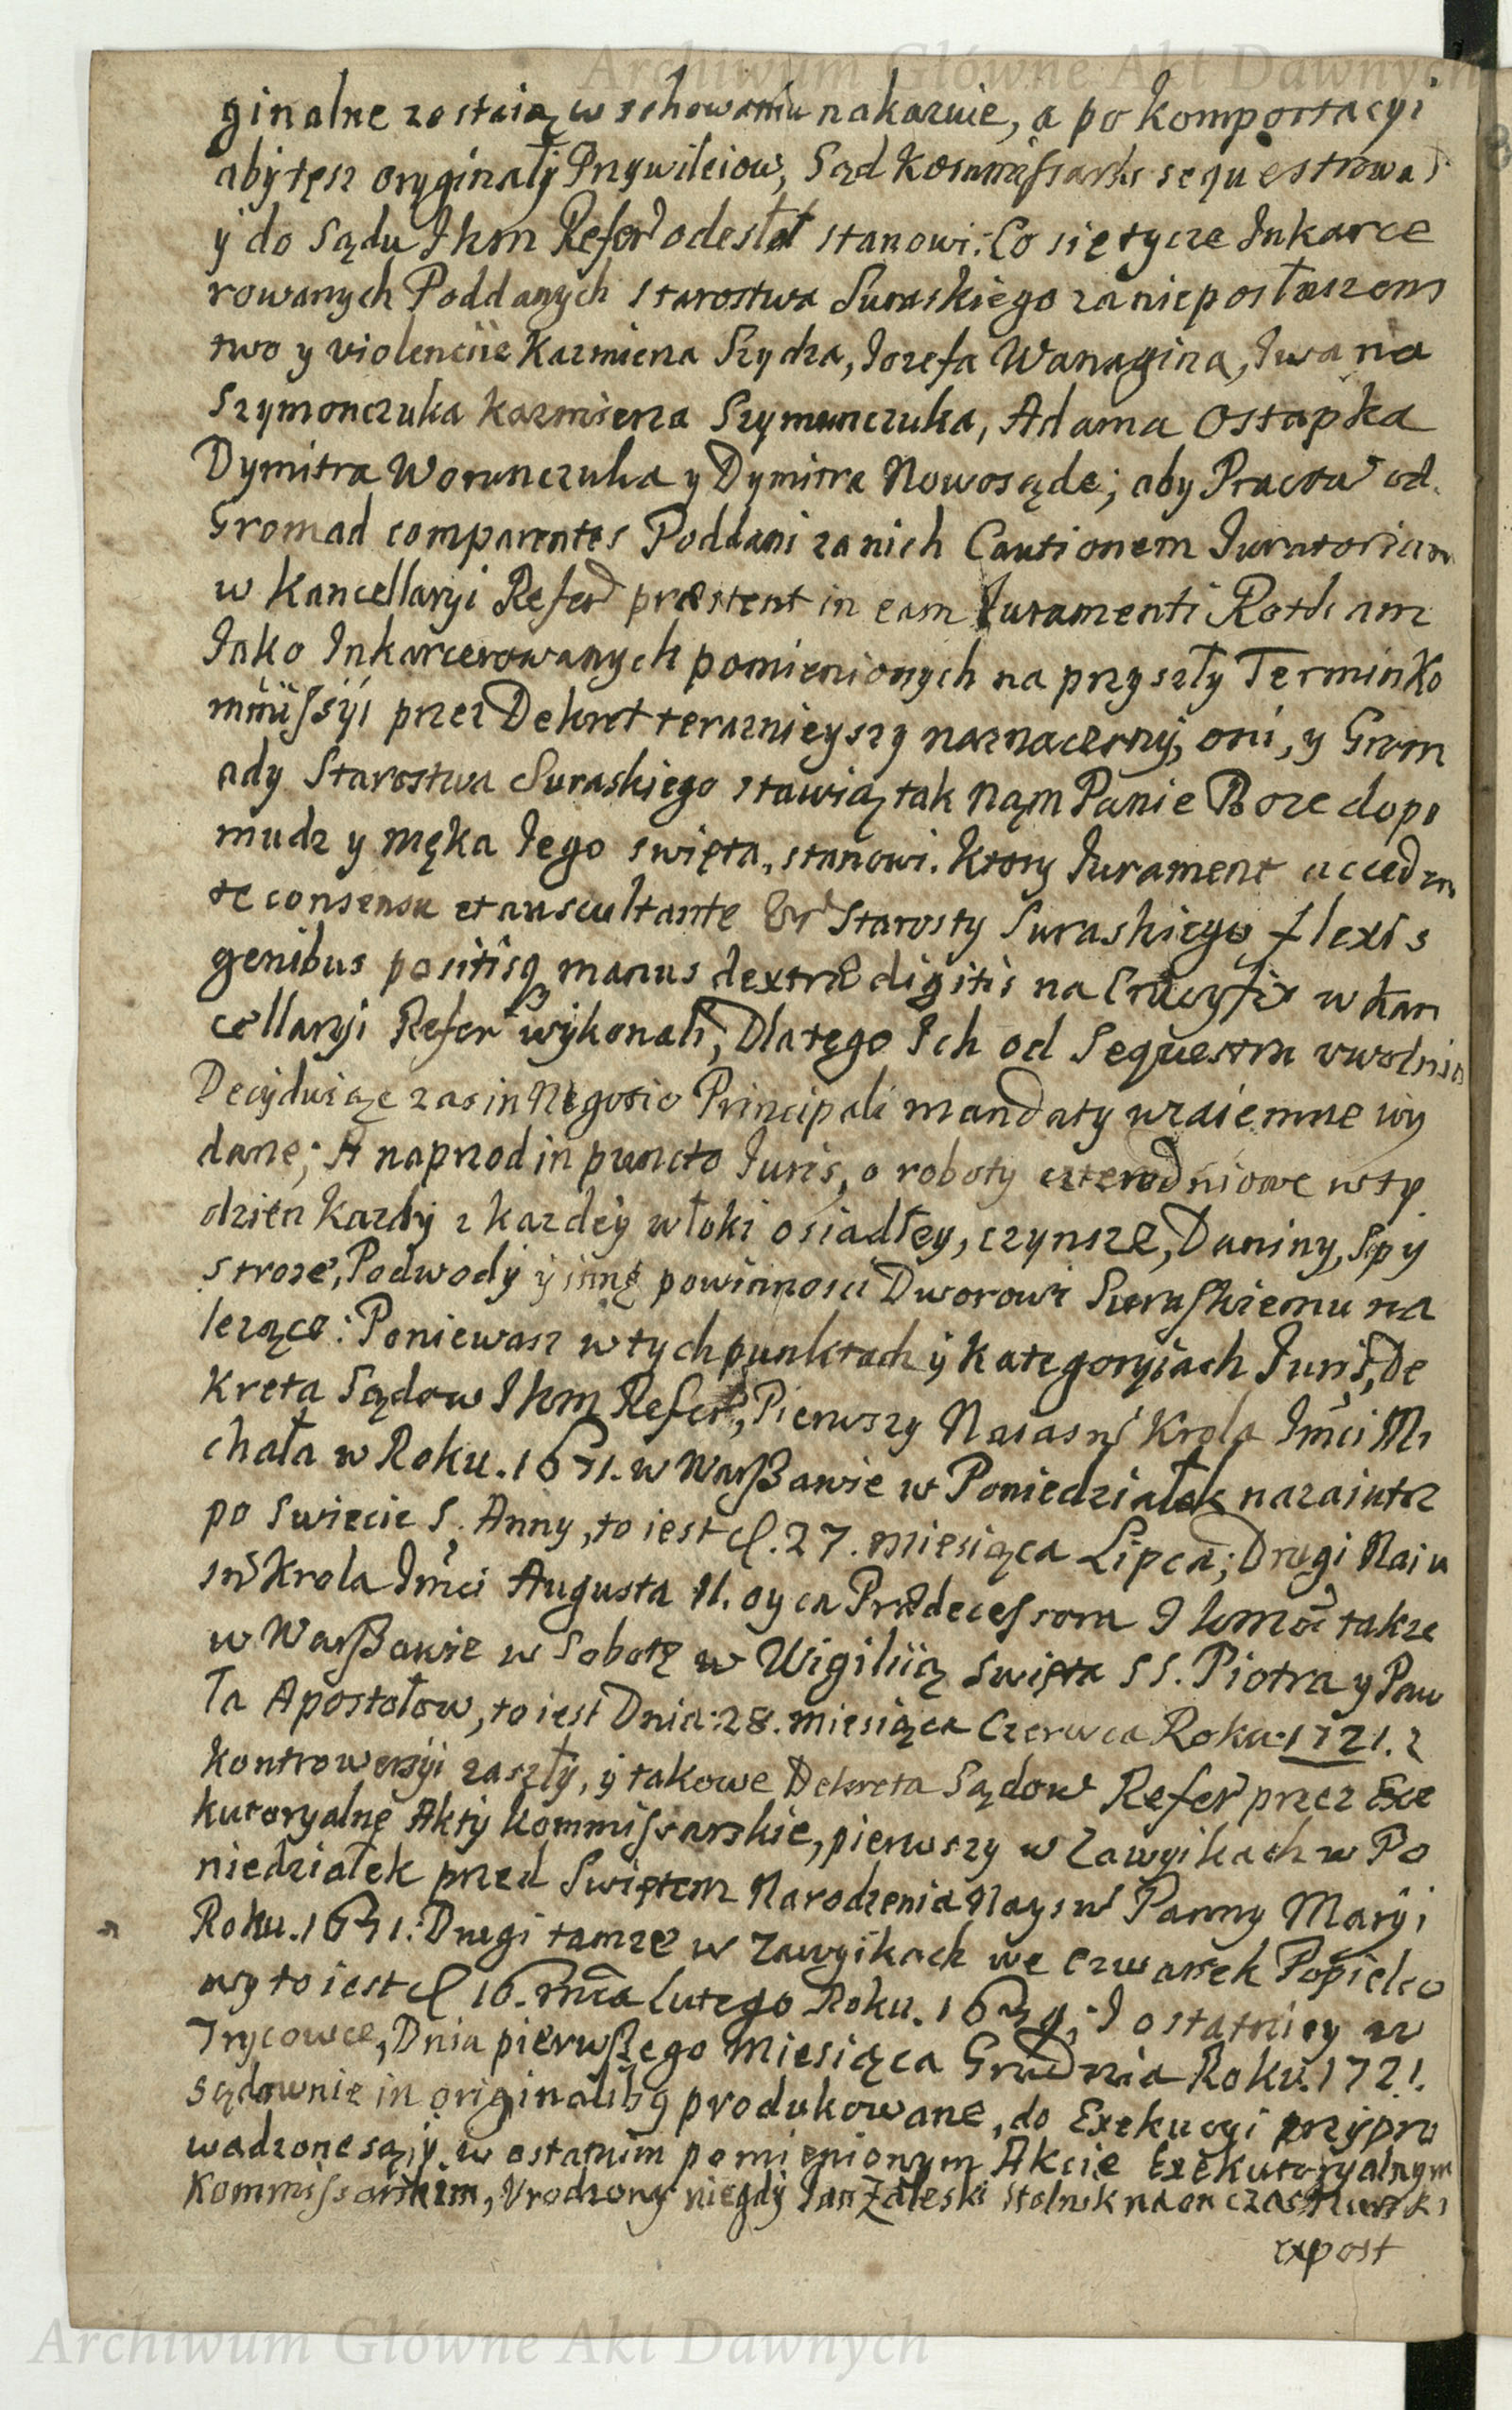 Archiwum Główne Akt Dawnych
ginalne zostaią w schowaniu nakazuie, a po komportacyi
aby tęsz oryginały Przywileiow, Sąd Kommissarski sequestrował
y do Sądu Ikm Refer odesłał stanowi: Co się tycze Inkarce
rowanych Poddanych Starostwa Suraskiego za nieposłuszens
two y violencije Kazmierza Szydza, Jozefa Wanagina, Iwana
Szymonczuka Kazmierza Szymunczuka, Adama Ostapka
Dymitra Worunczuka y Dymitra Nowosąde; aby od
Gromad comparentes Poddani za nich Cautionem Juratoriam
w Kancellaryi Refer præstent in eam Juramenti Rotham
Jako Inkarcerowanych pomienionych na przyszły Termin Ko
mmissyi przez Dekret teraznieyszy naznaczony, oni, y Grom
ady Starostwa Suraskiego stawią tak nąm Panie Boze dopo
mudz y męka Jego swięta, stanowi. Ktory Jurament acceden
te consensu et auscultante Ur Starosty Suraskiego flexis
genibus positisq manus dextræ digitis na Crucyfix w Kan
cellaryi Refer wykonali, Dlatęgo Ich od Sequestru uwolnia
Decyduiąc zas in Negotio Principali mandaty wzaiemne wy
dane; A naprzod in puncto Juris, o roboty czterodniowe w ty
dzien Kazdy z kazdey włoki osiadłey, czynsze, Daniny, Sepy
stroze, Podwody y innę powinnosci Dworowi Suraskiemu na
lezące: Poniewasz w tych punktach y kategoryiach Juris, De
kreta Sądow Ikm Refer, Pierwszy Naiasn Krola Jmci Mi
chała w Roku. 1671. w Warszawie w Poniedziałek nazaiutrz
po Swiecie S. Anny, to iest d. 27. miesiąca Lipca; Drugi Naia
sn Krola Jmci Augusta II. oyca Prædecessora Ikmci takze
w Warszawie w Sobotę w Wigiliią Swięta SS. Piotra y Paw
ła Apostołow, to iest Dnia: 28. miesiąca Czerwca Roku. 1721. z
kontrowersyi zaszły, y takowe Dekreta Sądow Refer przez Exe
kutoryalnę Akty Kommissarskie, pierwszy w Zawykach w Po
niedziałek przed Swiętem Narodzenia Nayśw Panny Maryi
Roku. 1671. Drugi tamze w Zawykach we Czwartek Popielco
wy to iest d 16. mca Lutego Roku. I ostatniey w
Trycowce, Dnia pierwszego Miesiąca Grudnia Roku. 1721.
sądownie in originalibq produkowane, do Exekucyi przypro
wadzone są, y w ostatnim pomienionym Akcie Exekutoryalnym
Kommissarskim, Urodzony niegdy Jan Zaleski Stolnik na on czas
expost
Archiwum Główne Akt Dawnych